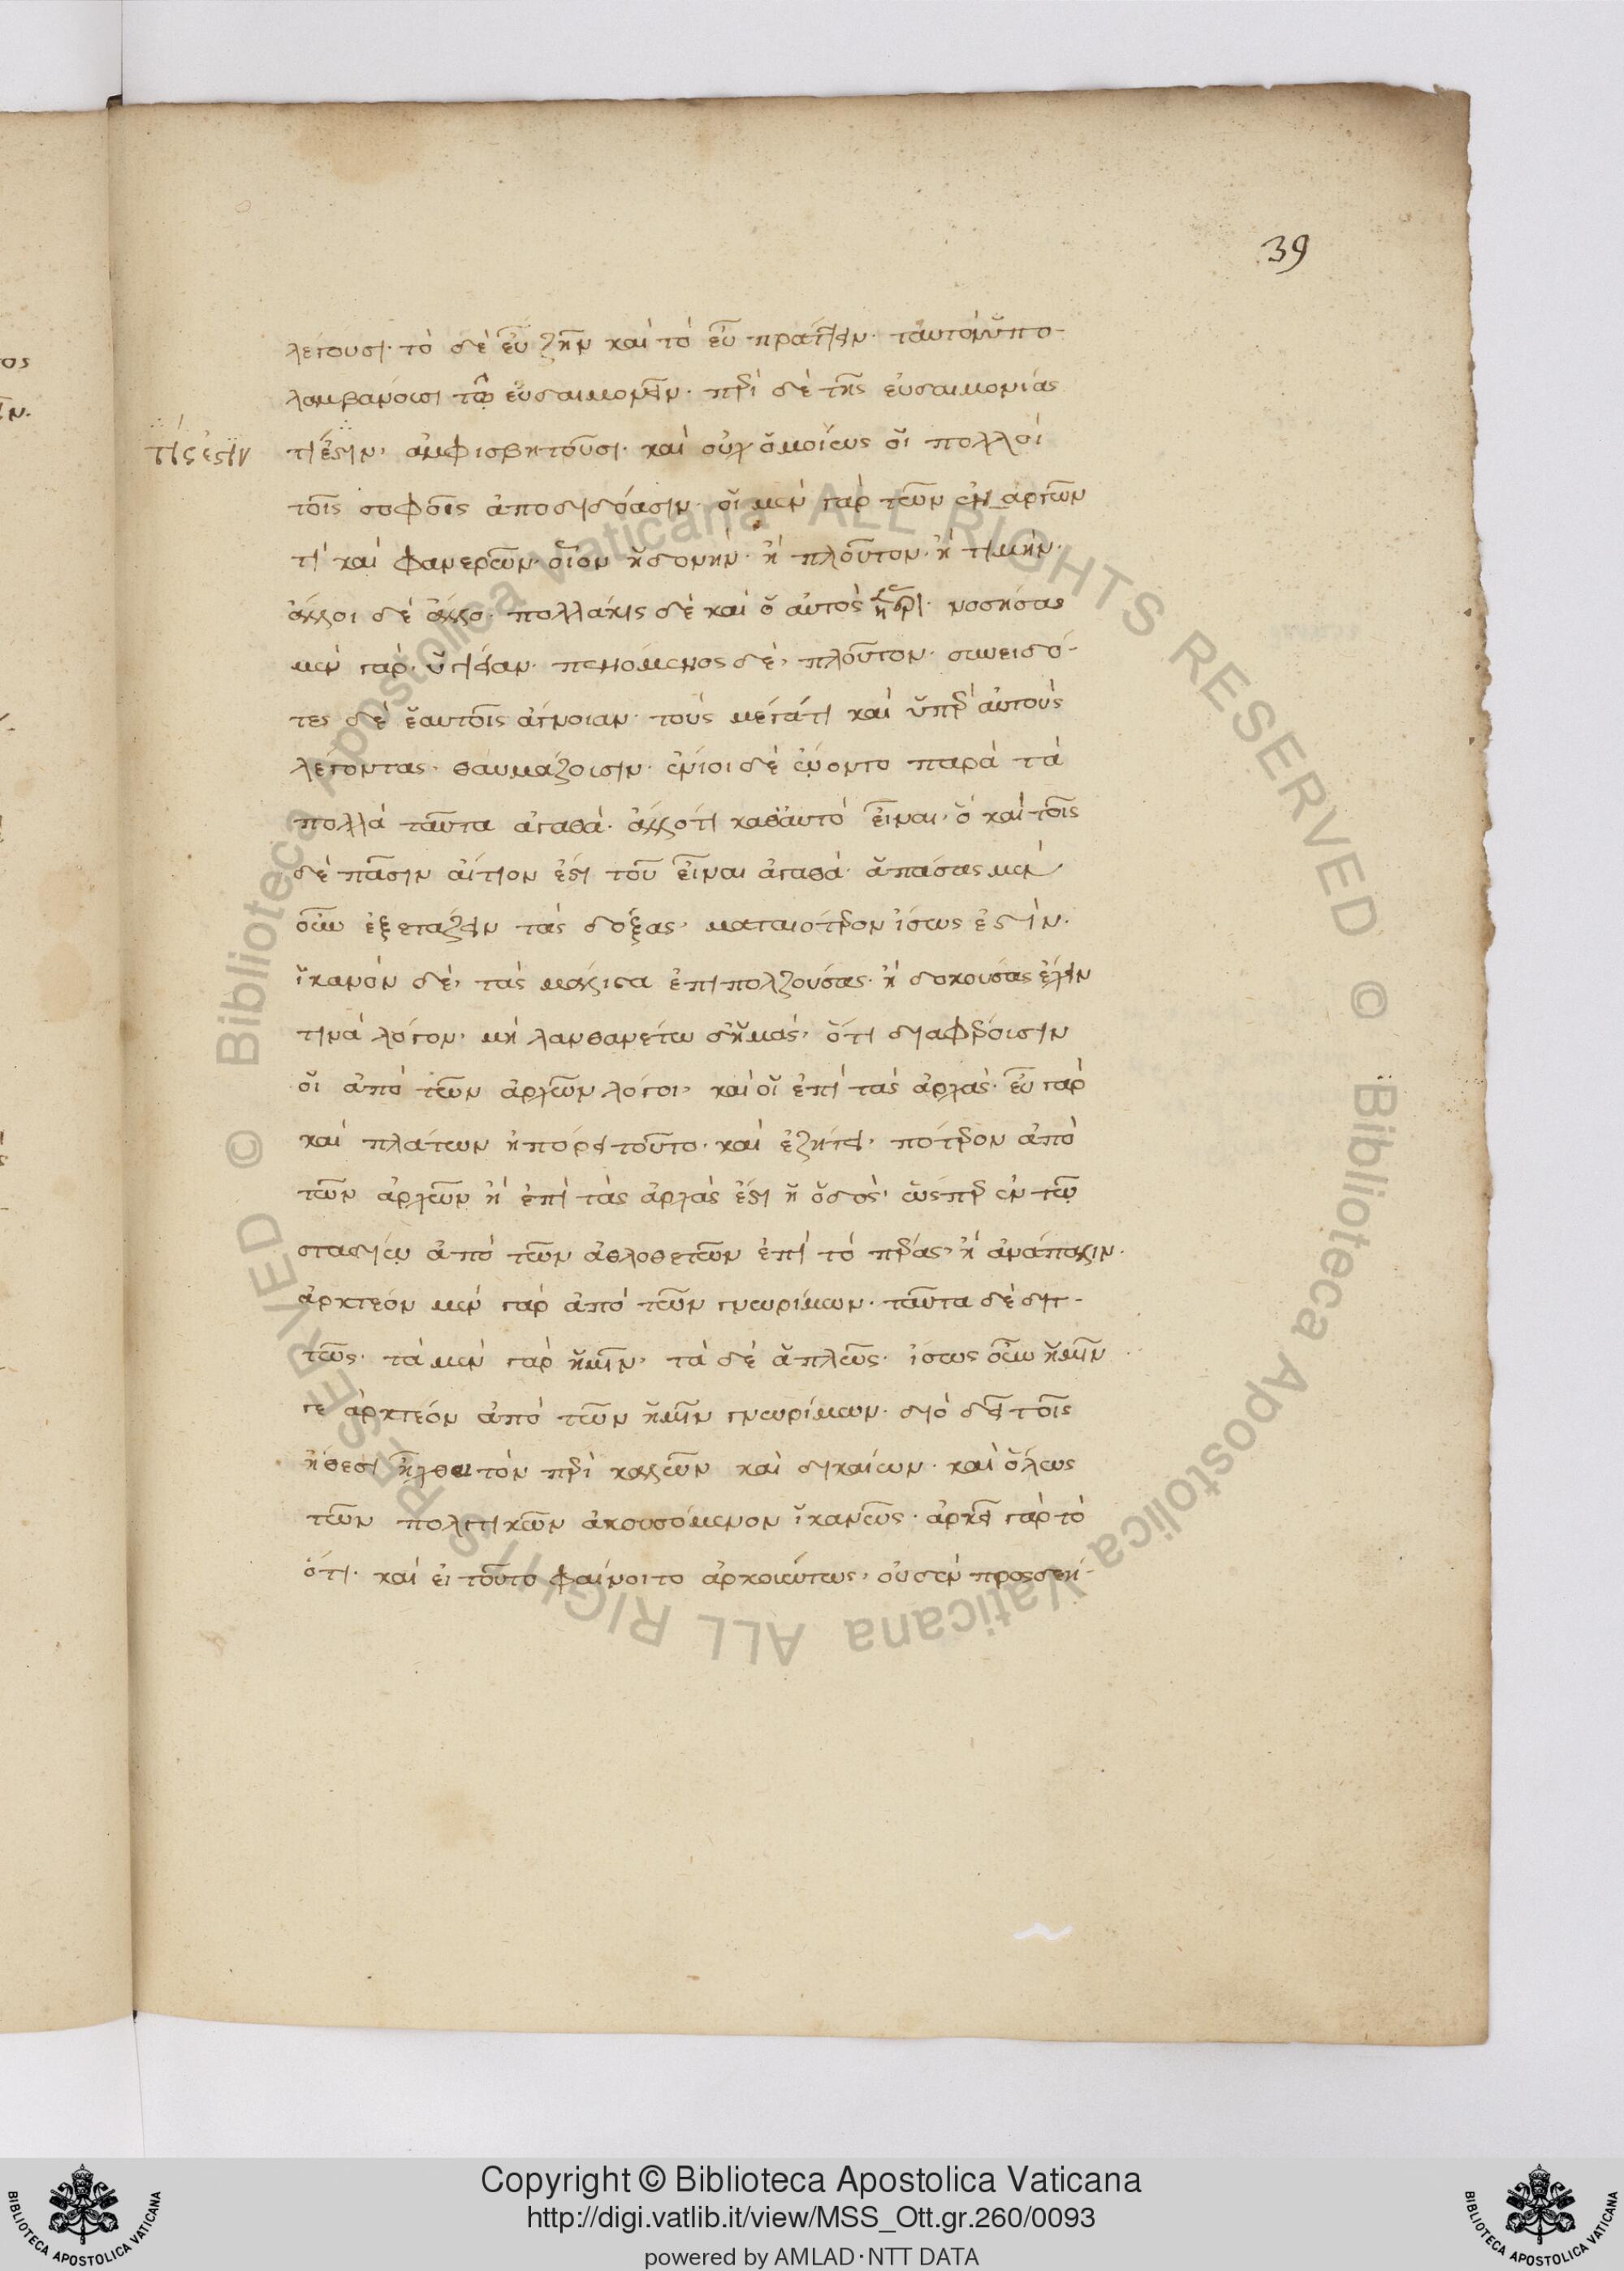 39
λέγουσι· τὸ δὲ εὖ ζῆν καὶ τὸ εὖ πράττειν· ταυτὸν ὑπο-
λαμβάνουσι τῶ εὐδαιμονεῖν· περὶ δὲ τῆς εὐδαιμονίας
τίς ἐστιν
τί ἐστιν, ἀμφισβητοῦσι· καὶ οὐχ ὁμοίως οἱ πολλοὶ
τοῖς σοφοῖς ἀποδιδόασιν· οἱ μὲν γὰρ τῶν ἐναργῶν
τὶ καὶ φανερῶν· οἷον ἡδονὴν· ἢ πλοῦτον· ἢ τιμὴν·
ἄλλοι δὲ ἄλλο· πολλάκις δὲ καὶ ὁ αὐτὸς νοσήσας
μὲν γὰρ· ὑγίειαν· πενόμενος δὲ, πλοῦτον· συνειδό-
τες δὲ ἑαυτοῖς ἄγνοιαν· τοὺς μέγά τι καὶ ὑπὲρ αὐτοὺς
λέγοντας· θαυμάζουσιν· ἔνιοι δὲ ᾤοντο παρὰ τὰ
πολλὰ ταῦτα ἀγαθὰ· ἄλλό τι καθ' αὑτὸ εἶναι· ὃ καὶ τοῖς
δὲ πᾶσιν αἴτιον ἐστὶ τοῦ εἶναι ἀγαθὰ· ἁπάσας μὲν
οὖν ἐξετάζειν τὰς δόξας, ματαιότερον ἴσως ἐστὶν·
ἱκανὸν δὲ, τὰς μάλιστα ἐπιπολζούσας· ἢ δοκούσας ἔχειν
τινὰ λόγον, μὴ λανθανέτω δ' ἡμᾶς, ὅτι διαφέρουσιν
οἱ ἀπὸ τῶν ἀρχῶν λόγοι, καὶ οἱ ἐπὶ τὰς ἀρχὰς· εὖ γὰρ
καὶ πλάτων ἠπόρει τοῦτο· καὶ ἐζήτει, πότερον ἀπὸ
τῶν ἀρχῶν ἢ ἐπὶ τὰς ἀρχάς ἐστι ἡ ὁδὸς, ὥσπερ ἐν τῷ
σταδίῳ ἀπὸ τῶν ἀθλοθετῶν ἐπὶ τὸ πέρας, ἢ ἀνάπαλιν·
ἀρκτέον μὲν γὰρ ἀπὸ τῶν γνωρίμων· ταῦτα δὲ διτ-
τῶς· τὰ μὲν γὰρ ἡμῖν, τὰ δὲ ἁπλῶς· ἴσως οὖν ἡμῖν
γε ἀρκτέον ἀπὸ τῶν ἡμῖν γνωρίμων· διὸ δεῖ τοῖς
ἤθεσι ἦχθαι τὸν περὶ καλῶν καὶ δικαίων· καὶ ὅλως
τῶν πολιτικῶν ἀκουσόμενον ἱκανῶς· ἀρχὴ γὰρ τὸ
ὅτι· καὶ εἰ τοῦτο φαίνοιτο ἀρκούντως, οὐδὲν προσδεή-
Copyright © Biblioteca Apostolica Vaticana
http://digi.vatlib.it/view/MSS_Ott.gr.260/0093
powered by AMLAD·NTT DATA
BIBLIOTECA APOSTOLICA VATICANA
BIBLIOTECA APOSTOLICA VATICANA
© Biblioteca Apostolica Vaticana ALL RIGHTS RESERVED © Biblioteca Apostolica Vaticana ALL RIGHTS RESERVED